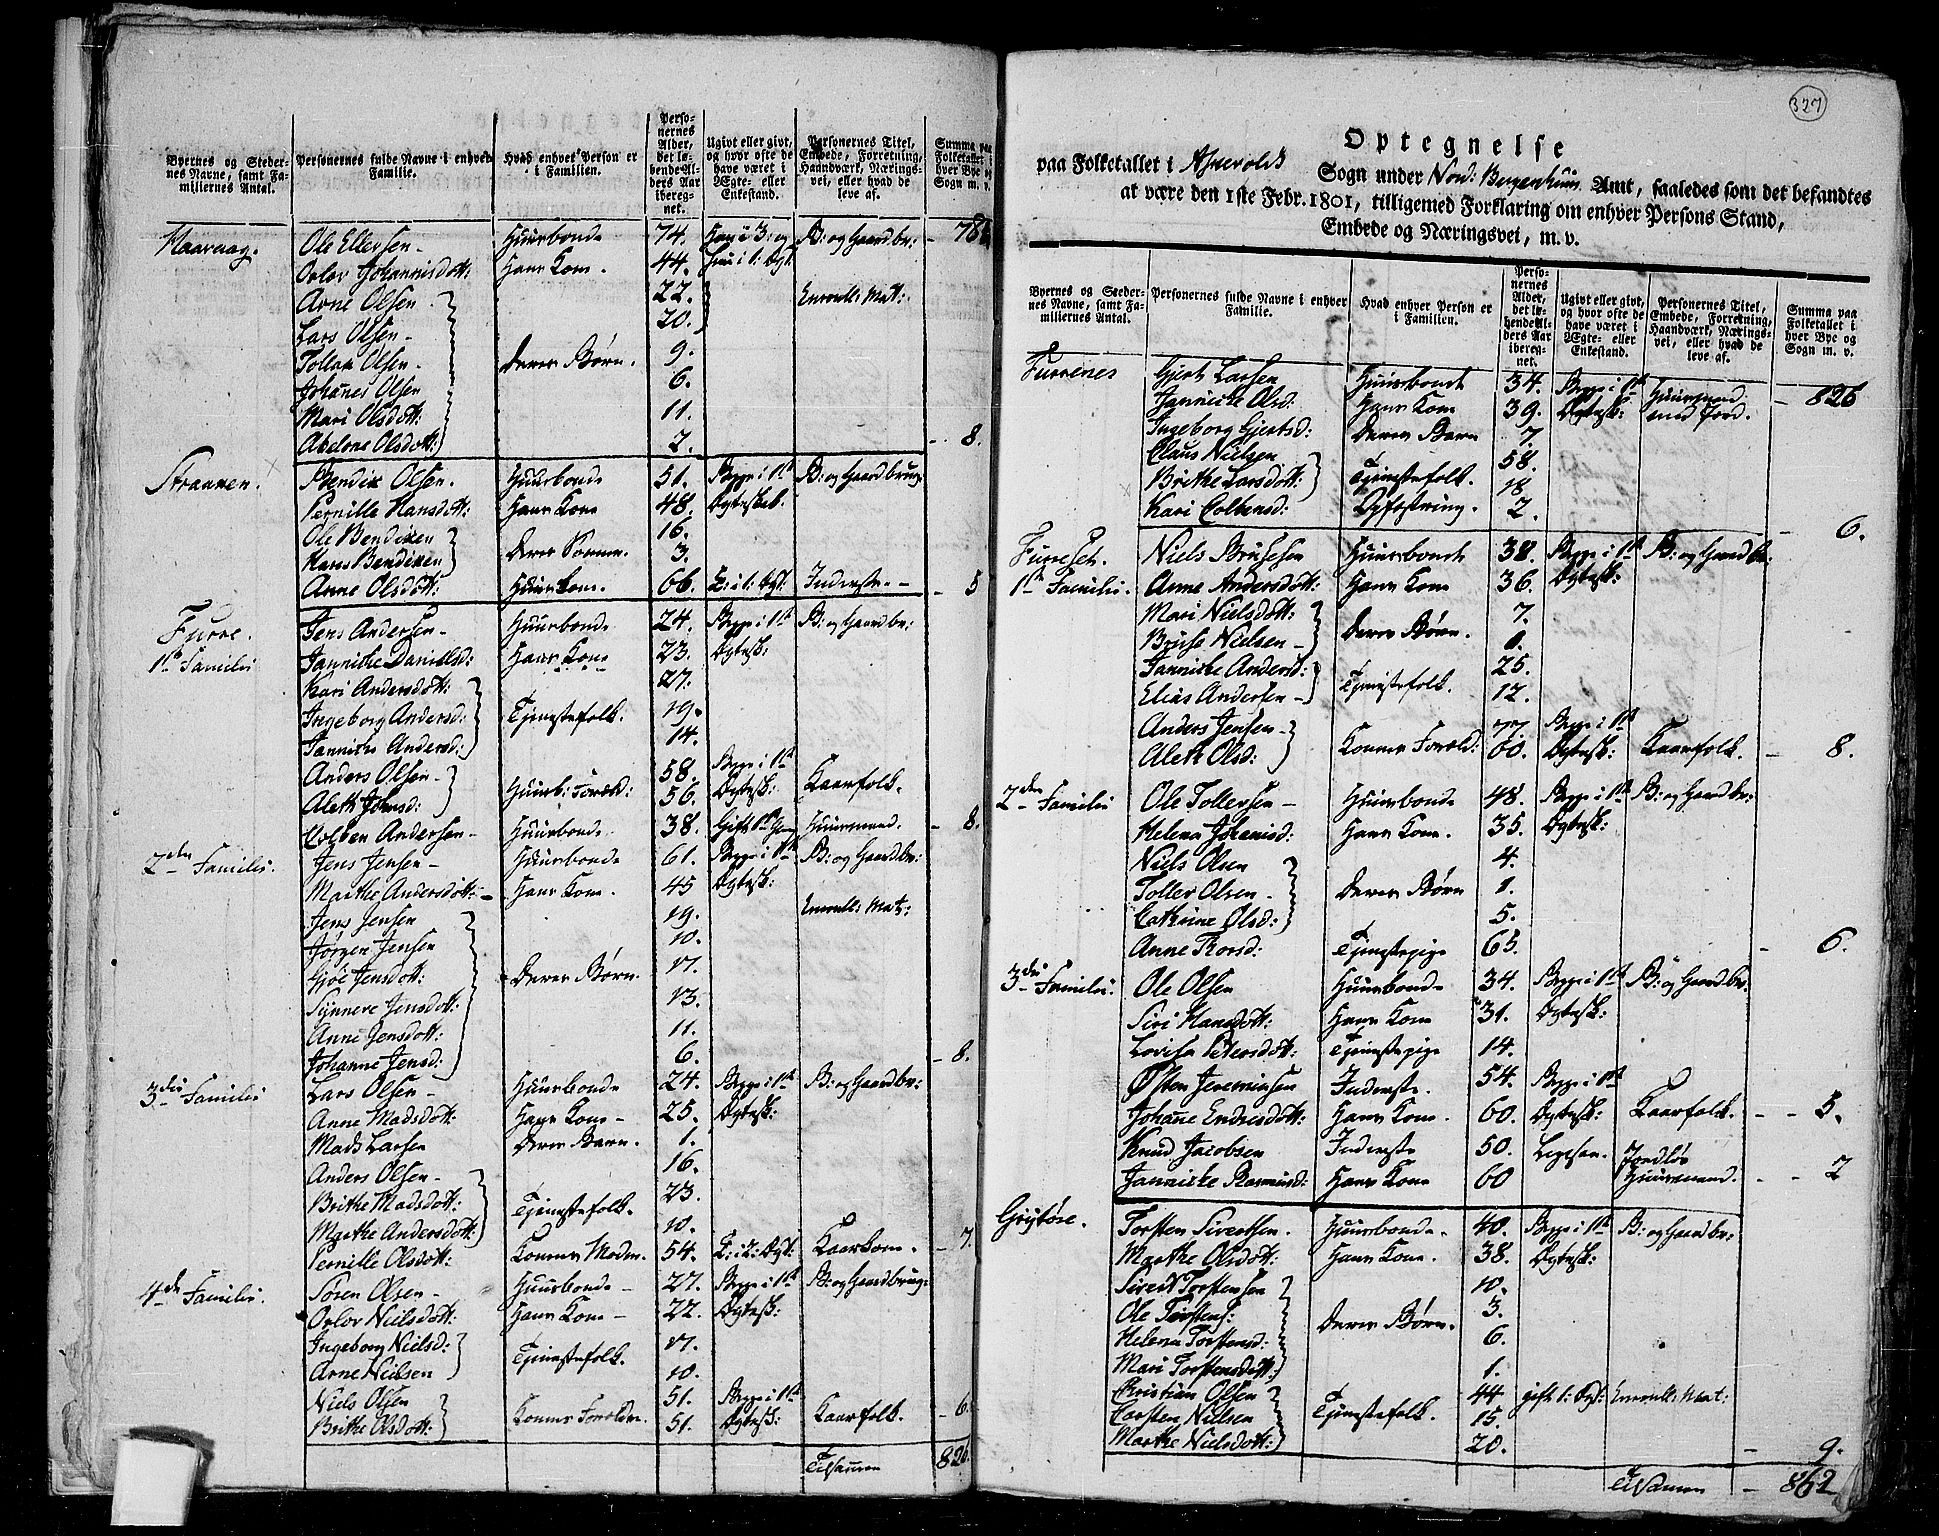 Byernes og Steder-
nes Navne, samt Fa-
miliernes Antal.
Personernes fulde Navne i enhver
Familie.
Hvad enhver Person er
i Familien.
Perso-
nernes
Alder,
det lø-
bende Al-
ders Aar
iberege-
net.
Ugivt eller givt,
og hvor ofte de
have været i
Ægte- eller
Enkestand.
Personernes Titel,
Embede, Forretning,
Haandværk, Nærings-
vei, eller hvad de
leve af.
Summa paa
Folketallet i
hver Bye og
Sogn m. v.
Ole Ellersen - Huusbonde 74. B: og Gaardbr: - 78
Orlov Johannisdott: Hans Kone. 44.
Arne Olsen 22. Enroull: Mat:
Lars Olsen - 20.
Tollak Olsen - Deres Børn. 9.
Johanes Olsen 6.
Mari Olsdott: 11.
Abelone Olsdott: 2. - 8.
Straumen. Bendix Olsen. Huusbonde 51. Begge i 1ste B: og Gaardbrug:
Pernille Hansdott: Hans Kone 48. Ægteskab.
Ole Bendixen 16.
Hans Bendixen Deres Sønner. 3.
Anne Olsdott: Huuskone. 66. E: i 1: Ægt: Inderste. - - 5
Furre. Jens Andersen - Huusbonde 24. Begge i 1ste B: og Gaardbr:
1ste Familie Jannicke Danielsd: Hans Kone 23. Ægtesk:
Kari Andersdott: 27.
Ingeborg Andersd: Tjenistefolk. 19.
Jannicke Andersd: 14.
Anders Olsen - 58. Begge i 1ste
Aleth Johnsd: Huusb: Foræld: 56. Ægtesk: Kaarfolk.
Colben Andersen - Huusbonde 38. Gift 1ste Gang Huusmand. - 8.
2den Familie. Jens Jensen - Huusbonde 61. Begge i 1ste B: og Gaardbr:
Marthe Andersdott: - Hans Kone. 45 Ægtesk:
Jens Jensen 19. Enroull: Mat:
Jørgen Jensen 10.
Gjøe Jensdott: Deres Børn. 17.
Synneve Jensdott: 13.
Anne Jensdott: 11.
Johanne Jensd: 6. - 8.
3die Familie Lars Olsen - Huusbonde 24. Begge i 1ste B: og Gaardbr:
Anne Madsdott: Hans Kone - 25. Ægtesk:
Mads Larsen Deres Barn. 1.
Anders Olsen - 16.
Brithe Madsdott: Tjenistefolk. 23.
Marthe Andersdott: 10.
Pernille Olsdott: Konens Moder. 54. E: i 2: Ægt: Kaarkone. - 7.
4de Familie. Sören Olsen - Huusbonde - 27. Begge i 1ste B: og Gaardbrug:
Orlov Nielsdott: Hans Kone - 22. Ægtesk:
Ingeborg Nielsd: 17.
Arne Nielsen Tjenistefolk. 10.
Niels Olsen 51. Begge i 1ste
Brithe Olsdott: Konens Forældre. 51. Ægtesk: Kaarfolk. - 6.
Tilsamen 826.
327
Optegnelse
paa Folketallet i Askevolds Sogn under Nord: Bergenhuus Amt, saaledes som det befandtes
at være den 1ste Febr. 1801, tilligemed Forklaring om enhver Persons Stand,
Embede og Næringsvei, m. v.
Byernes og Steder-
nes Navne, samt Fa-
miliernes Antal.
Personernes fulde Navne i enhver
Familie.
Hvad enhver Person er
i Familien.
Perso-
nernes
Alder,
det lø-
bende Al-
ders Aar
iberege-
net.
Ugivt eller givt,
og hvor ofte de
have været i
Ægte- eller
Enkestand.
Personernes Titel,
Embede, Forretning,
Haandværk, Nærings-
vei, eller hvad de
leve af.
Summa paa
Folketallet i
hver Bye og
Sogn m. v.
Furrenes Gjert Larsen Huusbonde 34. Begge i 1ste Huusmand - 826
Jannicke Olsd: Hans Kone 39. Ægtesk: med Jord.
Ingeborg Gjertsd: Deres Barn 7.
Claus Nielsen 58.
Brithe Larsdott: Tjenistefolk. 18
Kari Colbensd: Opfostring. 2. - 6.
Furreset. Niels Brusesen Huusbonde 38. Begge i 1ste B: og Gaardbr:
1ste Familie. Anne Andersdott: Hans Kone 36. Ægtesk:
Mari Nielsdott: 7.
Bruse Nielsen - Deres Børn. 1.
Jannicke Andersd: 25.
Elias Andersen - Tjenistefolk. 12.
Anders Jensen - 77. Begge i 1ste
Aleth Olsd: Konens Foræld: 60. Ægtesk: Kaarfolk. - 8.
2den Familie Ole Tollersen - Huusbonde 48. Begge i 1ste B: og Gaardbr:
Helena Johanisd: Hans Kone. 35. Ægtesk:
Niels Olsen 4.
Toller Olsen - Deres Børn 1.
Cathrine Olsd: 5.
Anne Thorsd: Tjenistepige 65. - 6.
3die Familie. Ole Olsen Huusbonde 34. Begge i 1ste B: og Gaardbr:
Siri Hansdott: Hans Kone 31. Ægtesk:
Lovisa Petersdott: Tjenistepige 14.
Østen Jeremiasen Inderste. 54. Begge i 1ste
Johane Endresdott: Hans Kone. 60. Ægtesk: Kaarfolk. - - 5.
Knud Jacobsen Inderste 50. Ligesaa. Jordløs
Jannicke Rasmusd: Hans Kone 60 Huusmand. - - 2
Grytøre. Torsten Sivertsen Huusbonde. 40. Begge i 1ste B: og Gaardbr:
Marthe Olsdott: Hans Kone. 38. Ægtesk:
Sivert Torstensen 10.
Ole Torstens: Deres Børn. 3.
Helena Torstensd: 6.
Mari Torstensdott: 1.
Christian Olsen 44 gift 1: Ægt: Enroull: Mat:
Carsten Nielsen Tjenistefolk. 15.
Marthe Nielsdott: 20. - 9.
Tilsamen - 862